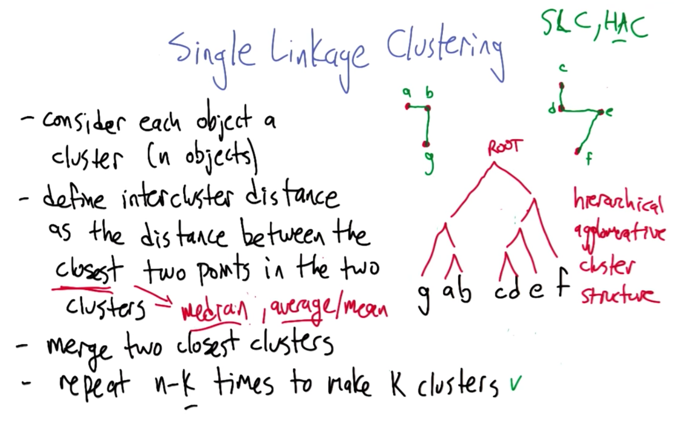 SLC, HAC
Single Linkage Clustering
- consider each object a
cluster (n objects)
- define intercluster distance
as the distance between the
closest two points in the two
clusters → median, average/mean
- merge two closest clusters
- repeat n-k times to make K clusters ✓
a b
g
c
d e
f
ROOT
g a b c d e f
hierarchical
agglomerative
cluster
structure